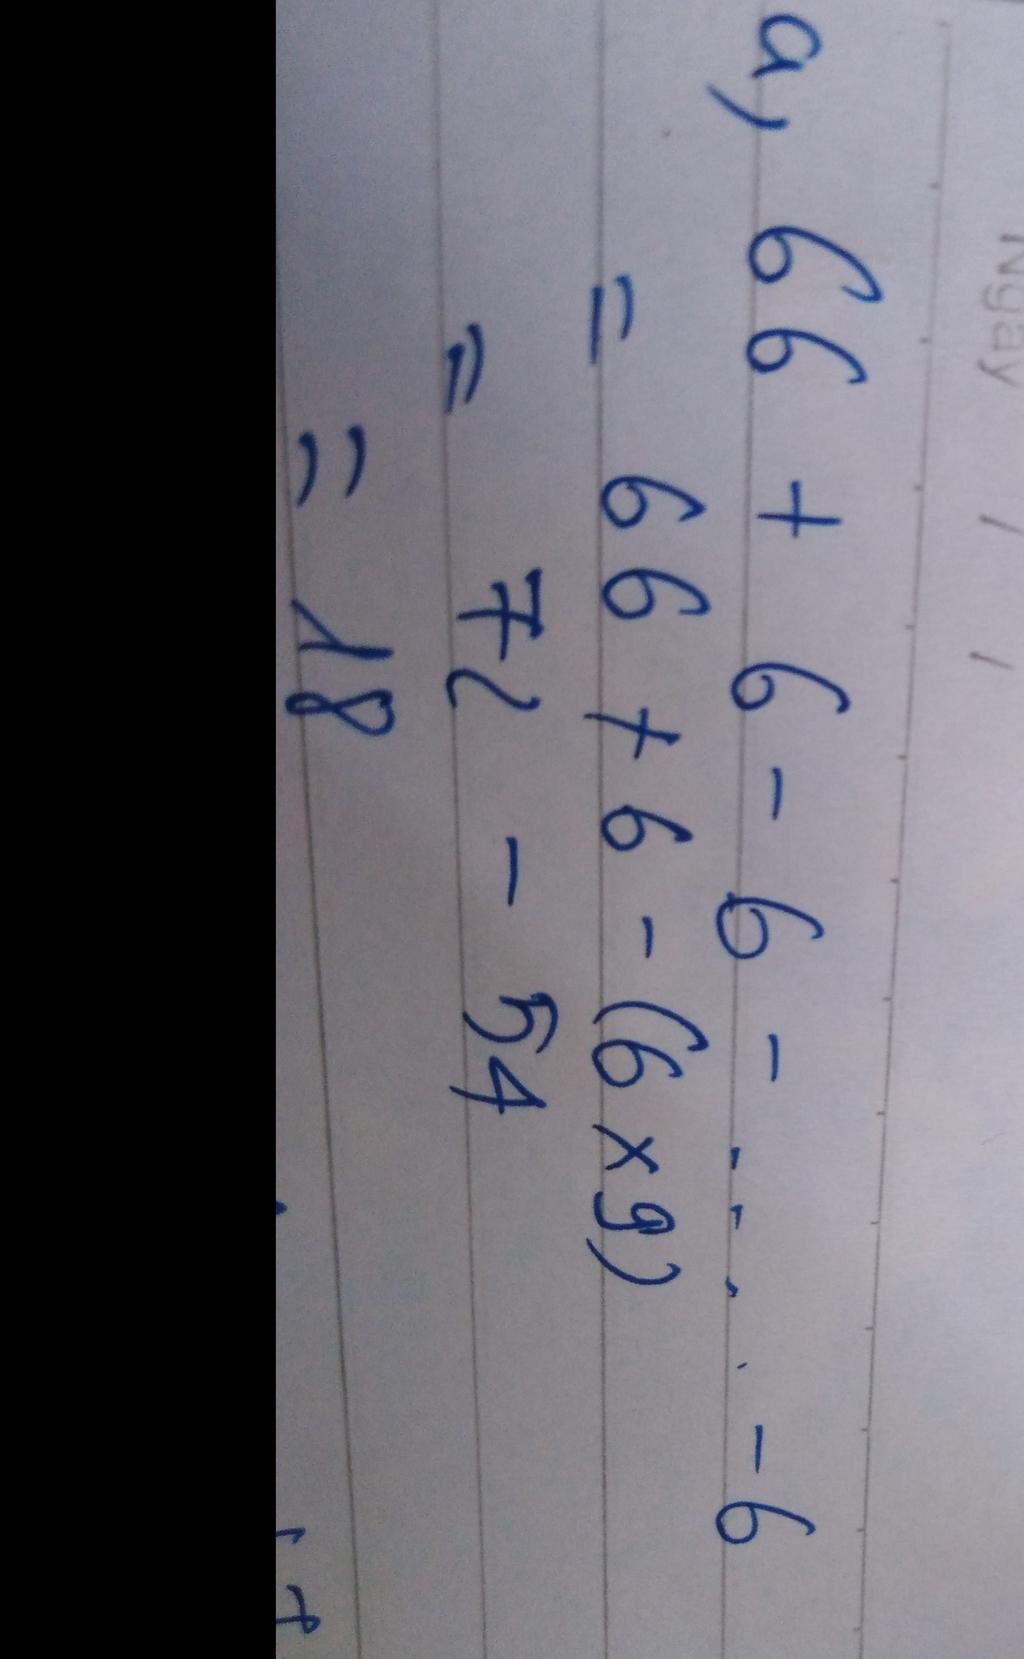 Ngày / /
a, 66 + 6 - 6 - .... - 6
= 66 + 6 - (6 x 9)
= 72 - 54
= 18